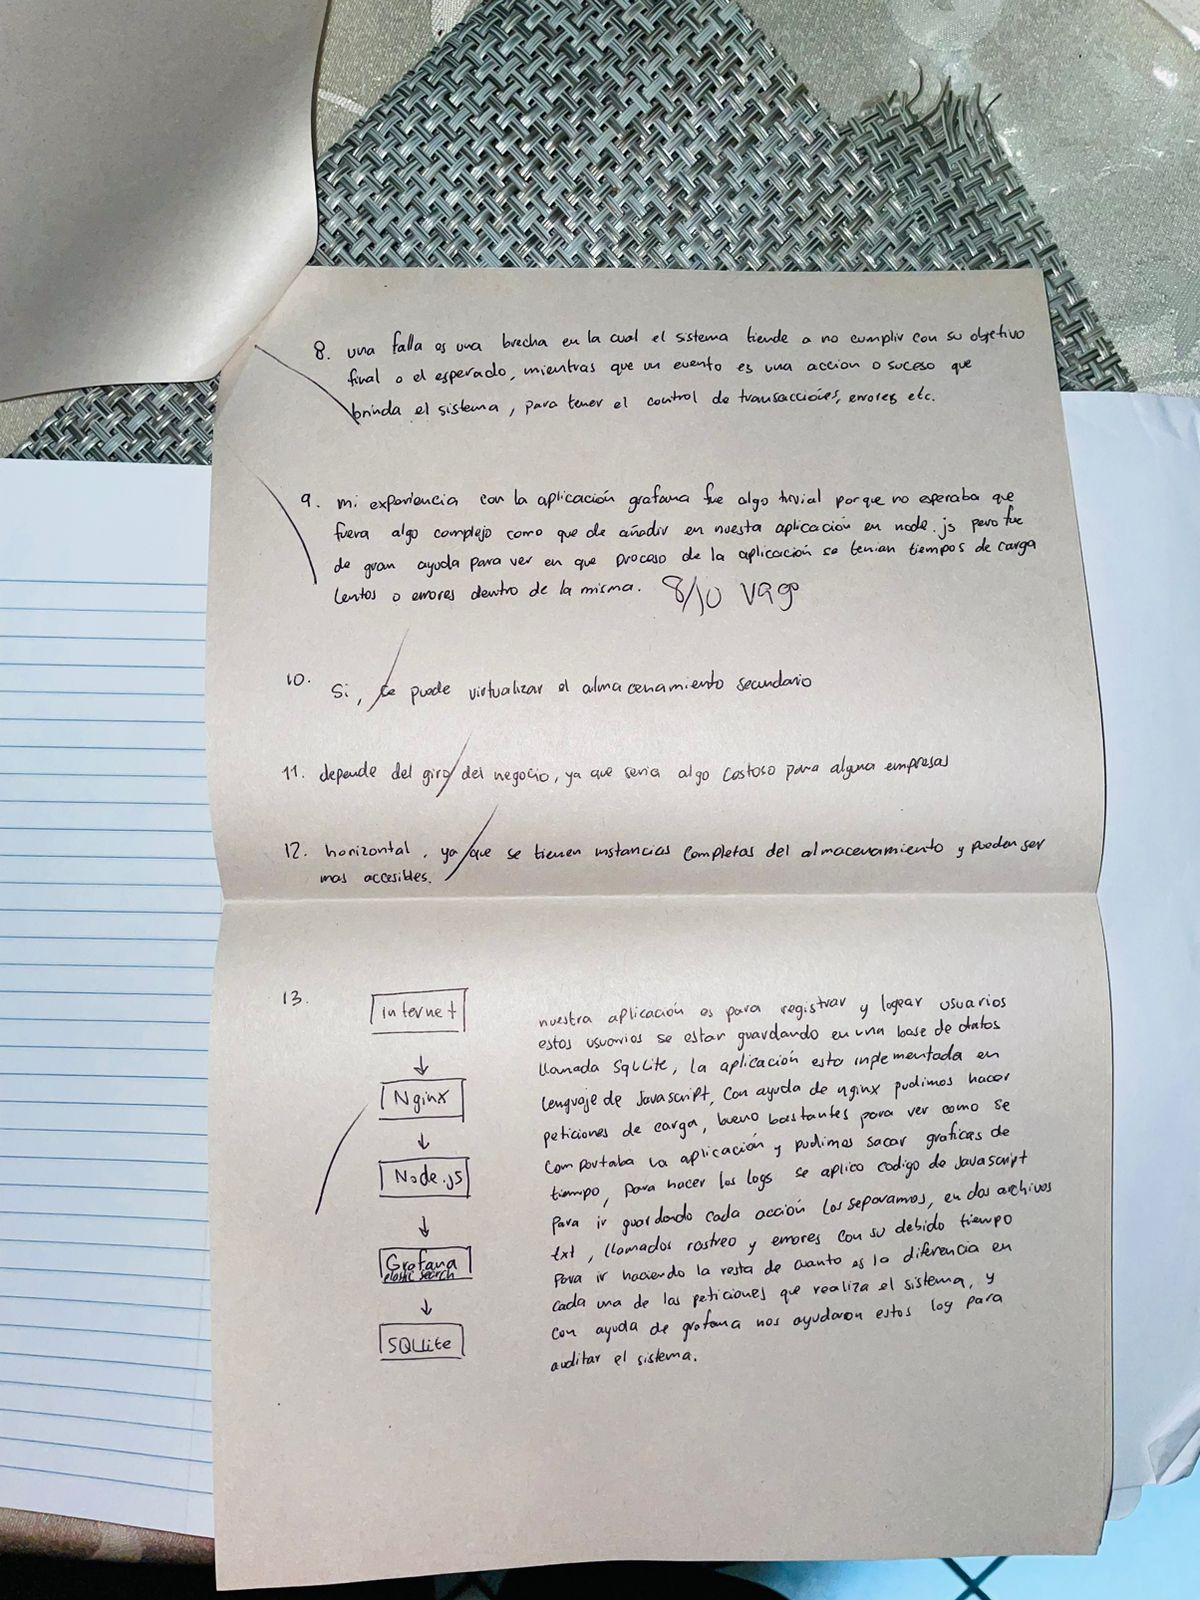 8. una falla es una brecha en la cual el sistema tiende a no cumplir con su objetivo
final o el esperado, mientras que un evento es una accion o suceso que
brinda el sistema, para tener el control de transacciones, errores etc.
9. mi experiencia con la aplicación grafana fue algo trivial porque no esperaba que
fuera algo complejo como que de añadir en nuesta aplicación en node.js pero fue
de gran ayuda para ver en que proceso de la aplicación se tenian tiempos de carga
lentos o errores dentro de la misma. 8/10 vago
10. Si, se puede virtualizar el almacenamiento secundario
11. depende del giro del negocio, ya que seria algo costoso para alguna empresas
12. horizontal, ya que se tienen instancias completas del almacenamiento y pueden ser
mas accesibles.
13.
internet
Nginx
Node.js
Grafana
elastic search
SQLlite
nuestra aplicación es para registrar y logear usuarios
estos usuarios se estar guardando en una base de datos
llamada SqlLite, la aplicación esta inplementada en
lenguaje de Javascript, con ayuda de nginx pudimos hacer
peticiones de carga, bueno bastantes para ver como se
comportaba la aplicación y pudimos sacar graficas de
tiempo, para hacer los logs se aplico codigo de Javascript
para ir guardando cada acción los separamos, en dos archivos
txt, llamados rastreo y errores con su debido tiempo
para ir haciendo la resta de cuanto es la diferencia en
cada una de las peticiones que realiza el sistema, y
con ayuda de grafana nos ayudaron estos log para
auditar el sistema.